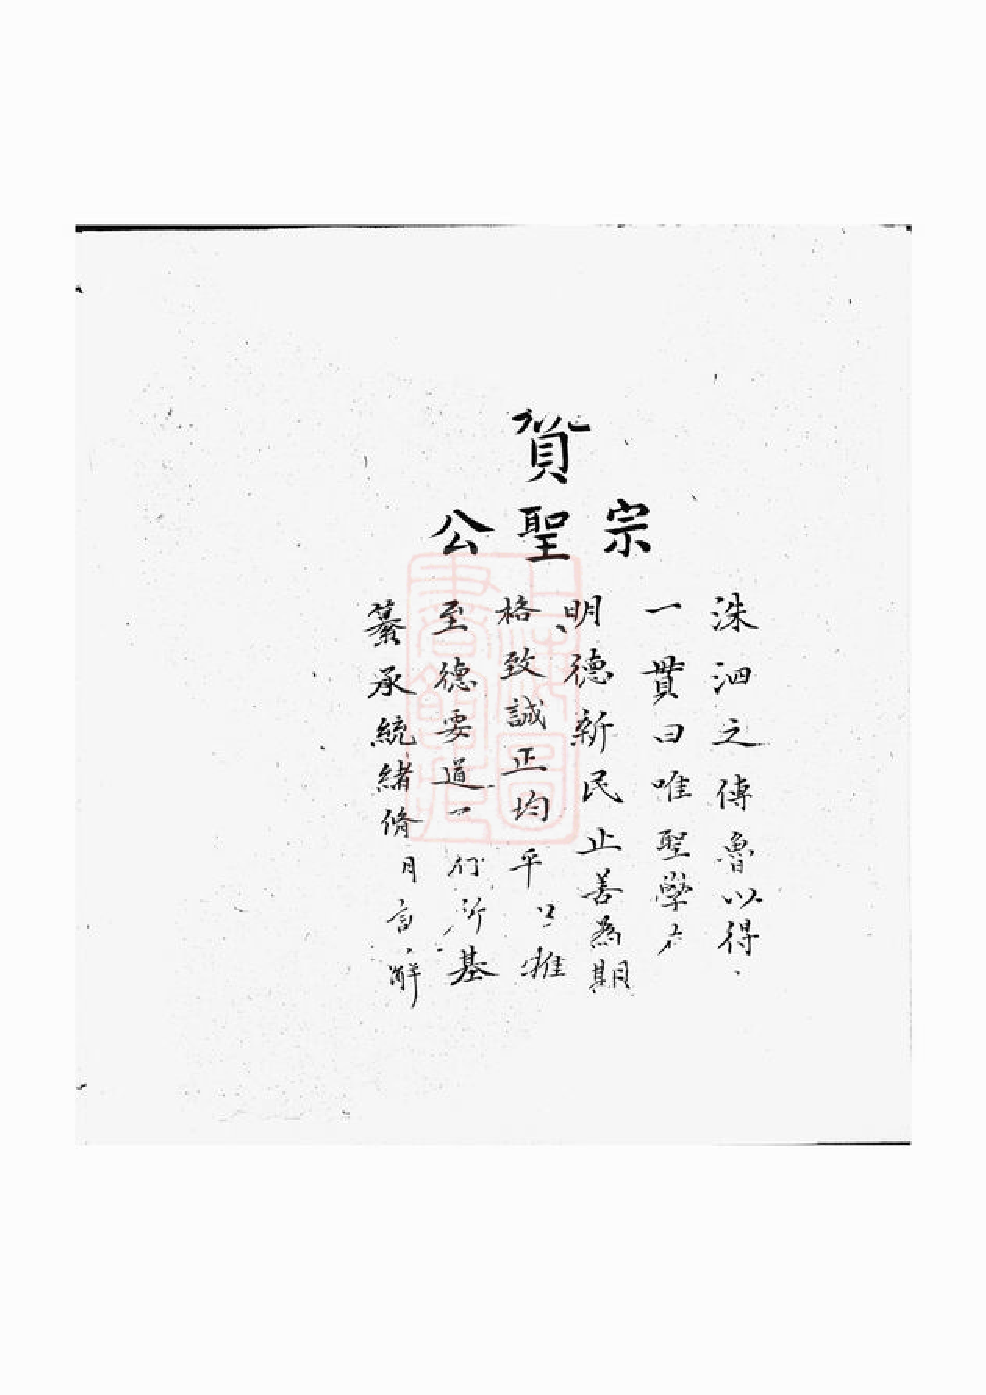 贊
宗聖公
洙泗之傳魯以得
一貫曰唯聖學
明德新民止善為期
格致誠正均平推
至德要道行所基
纂承統緒脩
上海圖書館藏